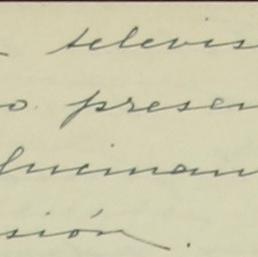 televis
o presen
lucinan
sión.